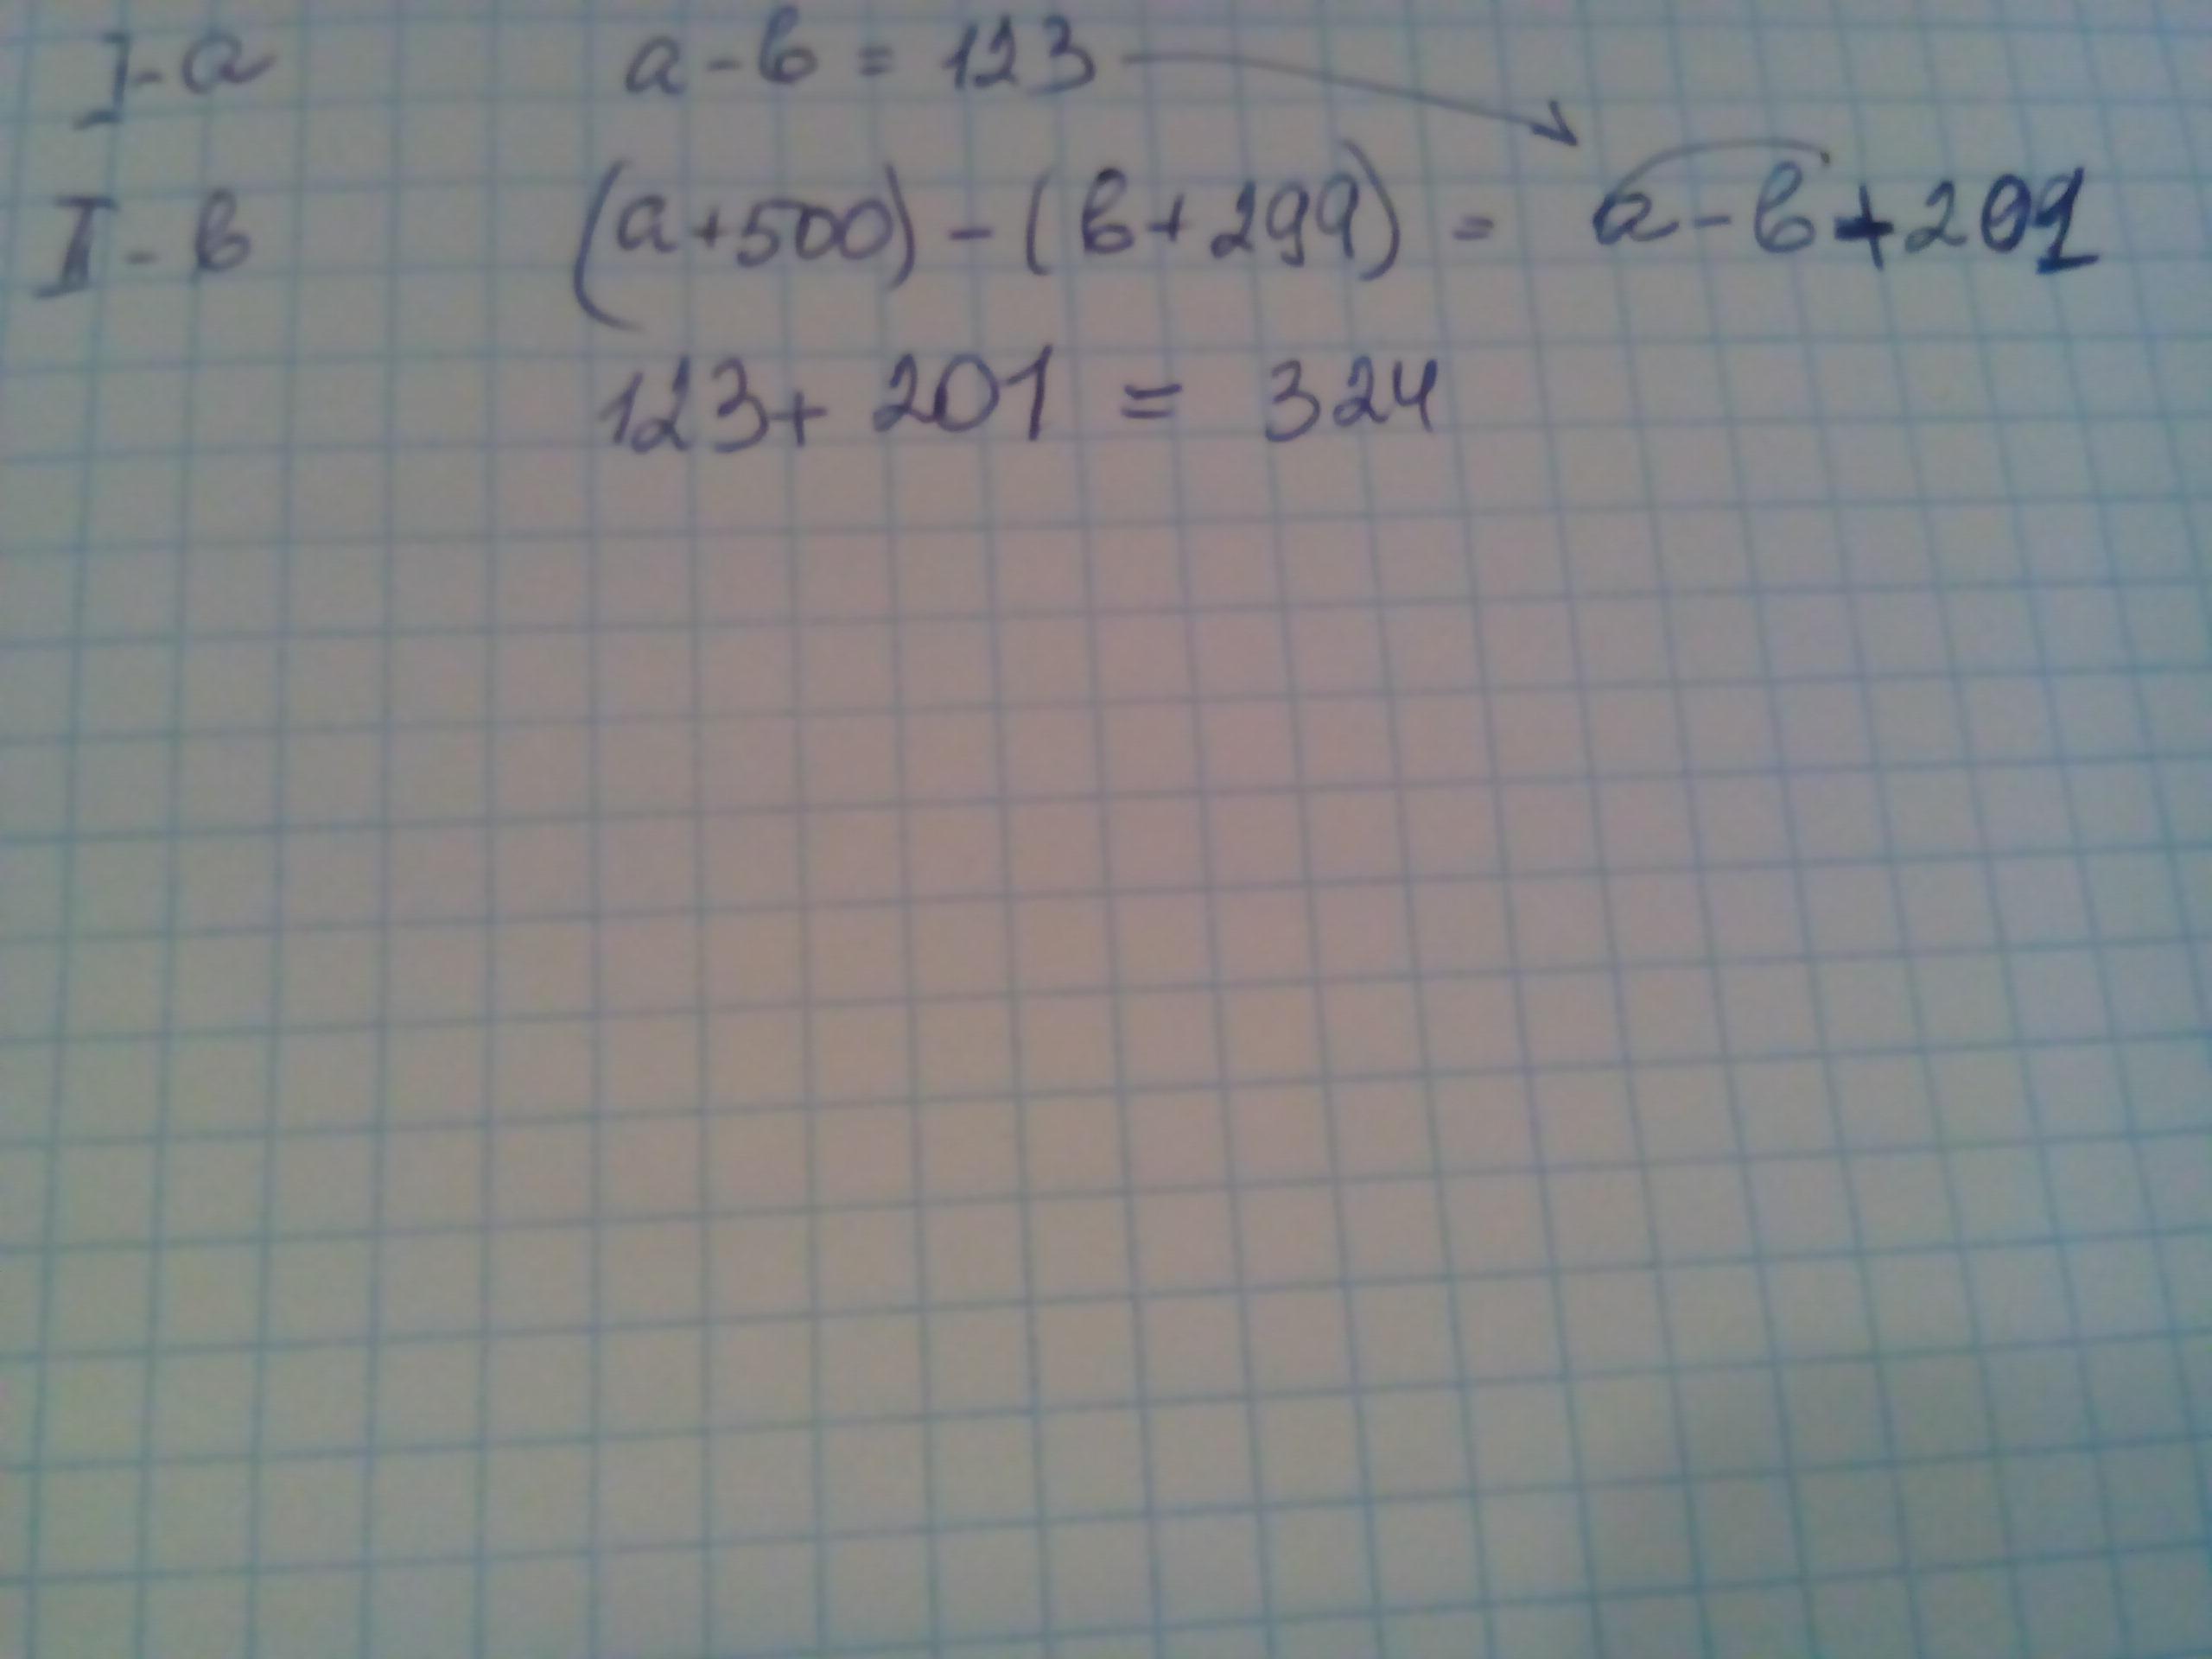 I - a a - в = 123
II - в (a+500) - (в+299) = a - в + 201
123 + 201 = 324